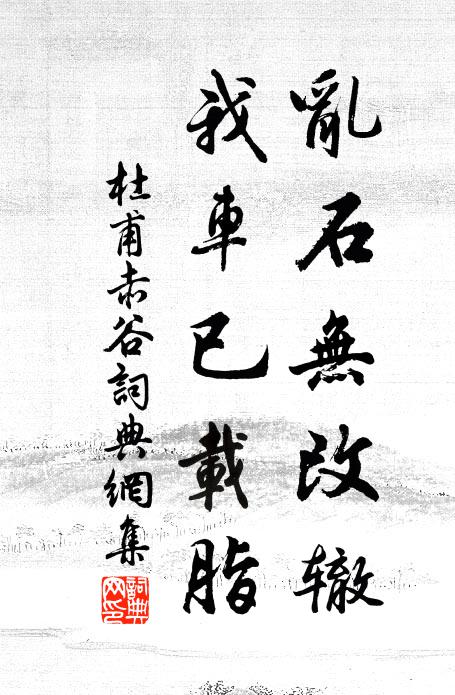 亂石無改辙
我車已載脂
杜甫赤谷詞典網集
詞典网印